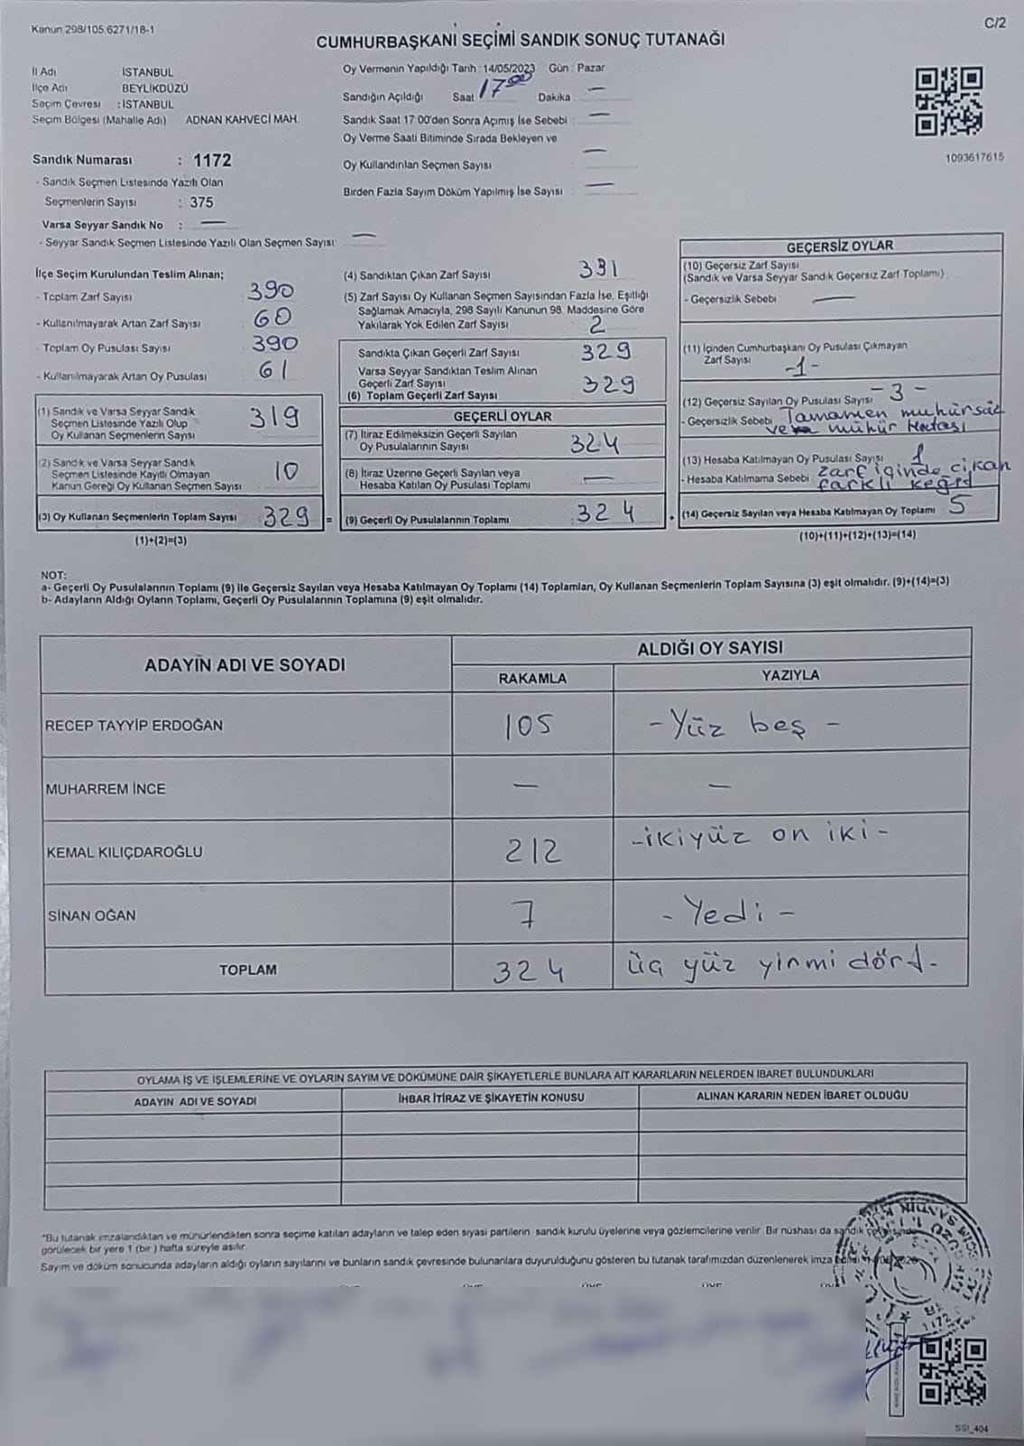 Kanun 298/105.6271/18-1
C/2
CUMHURBAŞKANİ SEÇİMİ SANDIK SONUÇ TUTANAĞI
İl Adı İSTANBUL
İlçe Adı BEYLİKDÜZÜ
Seçim Çevresi : İSTANBUL
Seçim Bölgesi (Mahalle Adı) ADNAN KAHVECİ MAH.
Oy Vermenin Yapıldığı Tarih : 14/05/2023 Gün : Pazar
Sandığın Açıldığı Saat 17 00 Dakika —
Sandık Saat 17 00'den Sonra Açımış İse Sebebi —
Oy Verme Saati Bitiminde Sırada Bekleyen ve
Oy Kullandırılan Seçmen Sayısı —
Birden Fazla Sayım Döküm Yapılmış İse Sayısı —
1093617615
Sandık Numarası : 1172
- Sandık Seçmen Listesinde Yazılı Olan
Seçmenlerin Sayısı : 375
Varsa Seyyar Sandık No : —
- Seyyar Sandık Seçmen Listesinde Yazılı Olan Seçmen Sayısı —
İlçe Seçim Kurulundan Teslim Alınan;
- Toplam Zarf Sayısı 390
- Kullanılmayarak Artan Zarf Sayısı 60
- Toplam Oy Pusulası Sayısı 390
- Kullanılmayarak Artan Oy Pusulası 61
(1) Sandık ve Varsa Seyyar Sandık
Seçmen Listesinde Yazılı Olup
Oy Kullanan Seçmenlerin Sayısı 319
(2) Sandık ve Varsa Seyyar Sandık
Seçmen Listesinde Kayıtlı Olmayan
Kanun Gereği Oy Kullanan Seçmen Sayısı 10
(3) Oy Kullanan Seçmenlerin Toplam Sayısı 329 =
(1)+(2)=(3)
(4) Sandıktan Çıkan Zarf Sayısı 331
(5) Zarf Sayısı Oy Kullanan Seçmen Sayısından Fazla İse, Eşitliği
Sağlamak Amacıyla, 298 Sayılı Kanunun 98. Maddesine Göre
Yakılarak Yok Edilen Zarf Sayısı 2
Sandıkta Çıkan Geçerli Zarf Sayısı 329
Varsa Seyyar Sandıktan Teslim Alınan
Geçerli Zarf Sayısı
(6) Toplam Geçerli Zarf Sayısı 329
GEÇERLİ OYLAR
(7) İtiraz Edilmeksizin Geçerli Sayılan
Oy Pusulalarının Sayısı 324
(8) İtiraz Üzerine Geçerli Sayılan veya
Hesaba Katılan Oy Pusulası Toplamı —
(9) Geçerli Oy Pusulalarının Toplamı 324 +
GEÇERSİZ OYLAR
(10) Geçersiz Zarf Sayısı
(Sandık ve Varsa Seyyar Sandık Geçersiz Zarf Toplamı)
- Geçersizlik Sebebi —
(11) İçinden Cumhurbaşkanı Oy Pusulası Çıkmayan
Zarf Sayısı -1-
(12) Geçersiz Sayılan Oy Pusulası Sayısı - 3 -
- Geçersizlik Sebebi Tamamen mühürsüz
veya mühür Hatası
(13) Hesaba Katılmayan Oy Pusulası Sayısı 1
- Hesaba Katılmama Sebebi zarf içinde çıkan
farklı keğıd
(14) Geçersiz Sayılan veya Hesaba Katılmayan Oy Toplamı 5
(10)+(11)+(12)+(13)=(14)
NOT:
a- Geçerli Oy Pusulalarının Toplamı (9) ile Geçersiz Sayılan veya Hesaba Katılmayan Oy Toplamı (14) Toplamları, Oy Kullanan Seçmenlerin Toplam Sayısına (3) eşit olmalıdır. (9)+(14)=(3)
b- Adayların Aldığı Oyların Toplamı, Geçerli Oy Pusulalarının Toplamına (9) eşit olmalıdır.
ADAYIN ADI VE SOYADI ALDIĞI OY SAYISI
RAKAMLA YAZIYLA
RECEP TAYYİP ERDOĞAN 105 - Yüz beş -
MUHARREM İNCE — —
KEMAL KILIÇDAROĞLU 212 -ikiyüz on iki-
SİNAN OĞAN 7 - Yedi -
TOPLAM 324 üç yüz yirmi dört-
OYLAMA İŞ VE İŞLEMLERİNE VE OYLARIN SAYIM VE DÖKÜMÜNE DAİR ŞİKAYETLERLE BUNLARA AİT KARARLARIN NELERDEN İBARET BULUNDUKLARI
ADAYIN ADI VE SOYADI İHBAR İTİRAZ VE ŞİKAYETİN KONUSU ALINAN KARARIN NEDEN İBARET OLDUĞU
"Bu tutanak imzalandıktan ve mühürlendikten sonra seçime katılan adayların ve talep eden siyasi partilerin sandık kurulu üyelerine veya gözlemcilerine verilir. Bir nüshası da sandık
görülecek bir yere 1 (bir) hafta süreyle asılır.
Sayım ve döküm sonucunda adayların aldığı oyların sayılarını ve bunların sandık çevresinde bulunanlara duyurulduğunu gösteren bu tutanak tarafımızdan düzenlenerek imza
1172
SSI_404